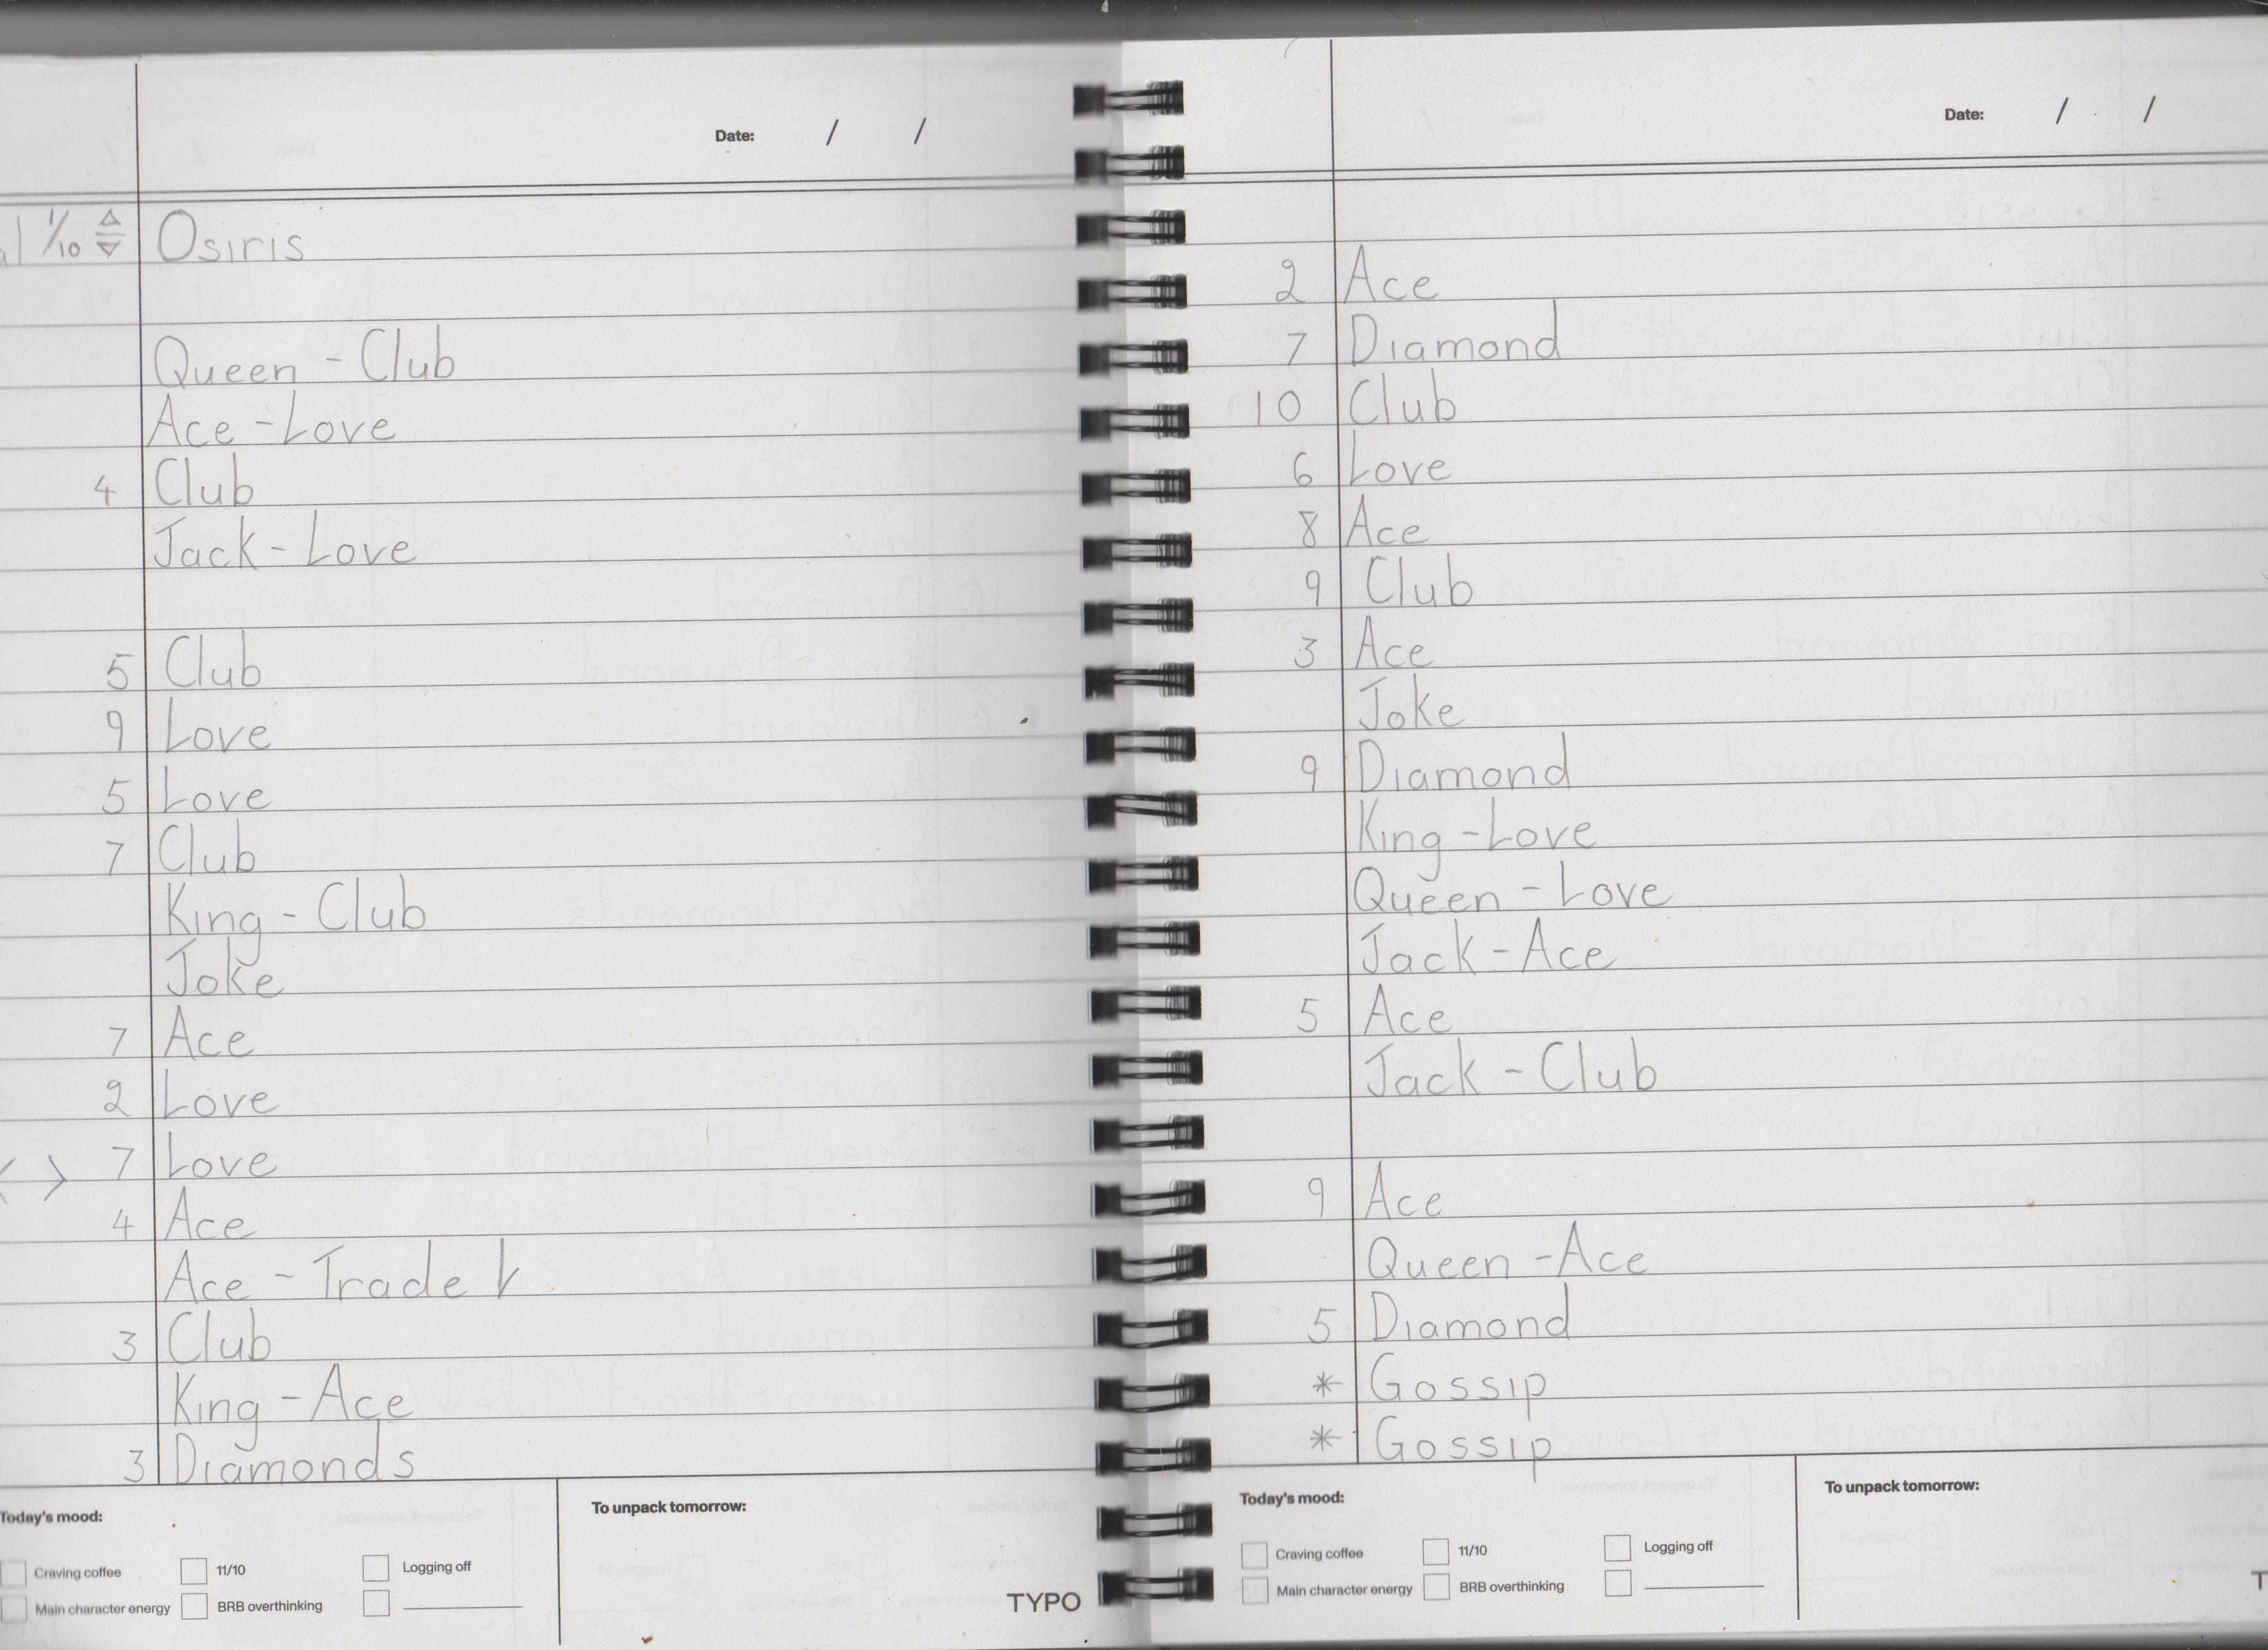 Date: / /
1/10 Osiris
Queen - Club
Ace - Love
4 Club
Jack - Love
5 Club
9 Love
5 Love
7 Club
King - Club
Joke
7 Ace
2 Love
< > 7 Love
4 Ace
Ace - Trade
3 Club
King - Ace
3 Diamonds
Today's mood:
Craving coffee
11/10
Logging off
Main character energy
BRB overthinking
To unpack tomorrow:
TYPO
Date: / /
2 Ace
7 Diamond
10 Club
6 Love
8 Ace
9 Club
3 Ace
Joke
9 Diamond
King - Love
Queen - Love
Jack - Ace
5 Ace
Jack - Club
9 Ace
Queen - Ace
5 Diamond
* Gossip
* Gossip
Today's mood:
Craving coffee
11/10
Logging off
Main character energy
BRB overthinking
To unpack tomorrow: